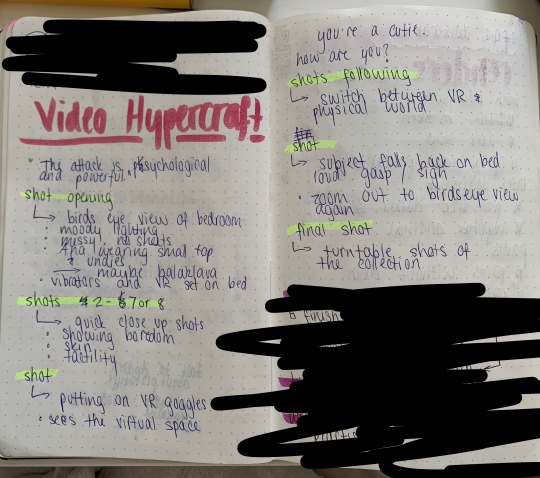 Video Hypercraft
"The attack is psychological
and powerful."
shot opening
birds eye view of bedroom
moody lighting
messy, no shots
wearing small top
& undies
maybe balaklava
vibrators and VR set on bed
shots 2 - 7 or 8
quick close up shots
showing boredom
skin
tactility
shot
putting on VR goggles
sees the virtual space
you're a cutie
how are you?
shots following
switch between VR &
physical world
shot
subject falls back on bed
loud gasp / sigh
zoom out to birdseye view
again
final shot
turntable shots of
the collection
finish